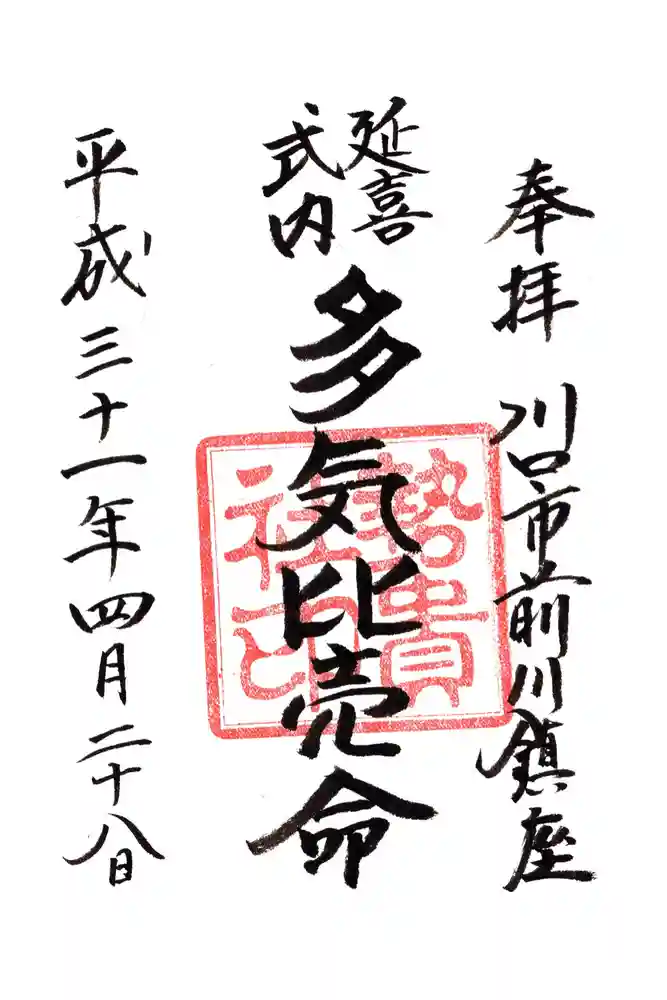 奉拝 川口市前川鎮座
延喜
式内
多気比売命
勢貴
社印
平成三十一年四月二十八日